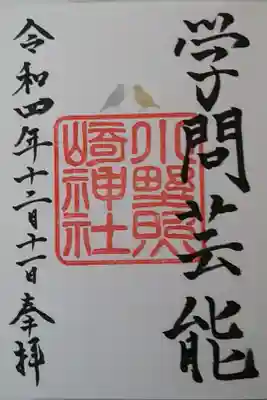 学問芸能
小野照
崎神社
令和四年十二月十一日奉拝